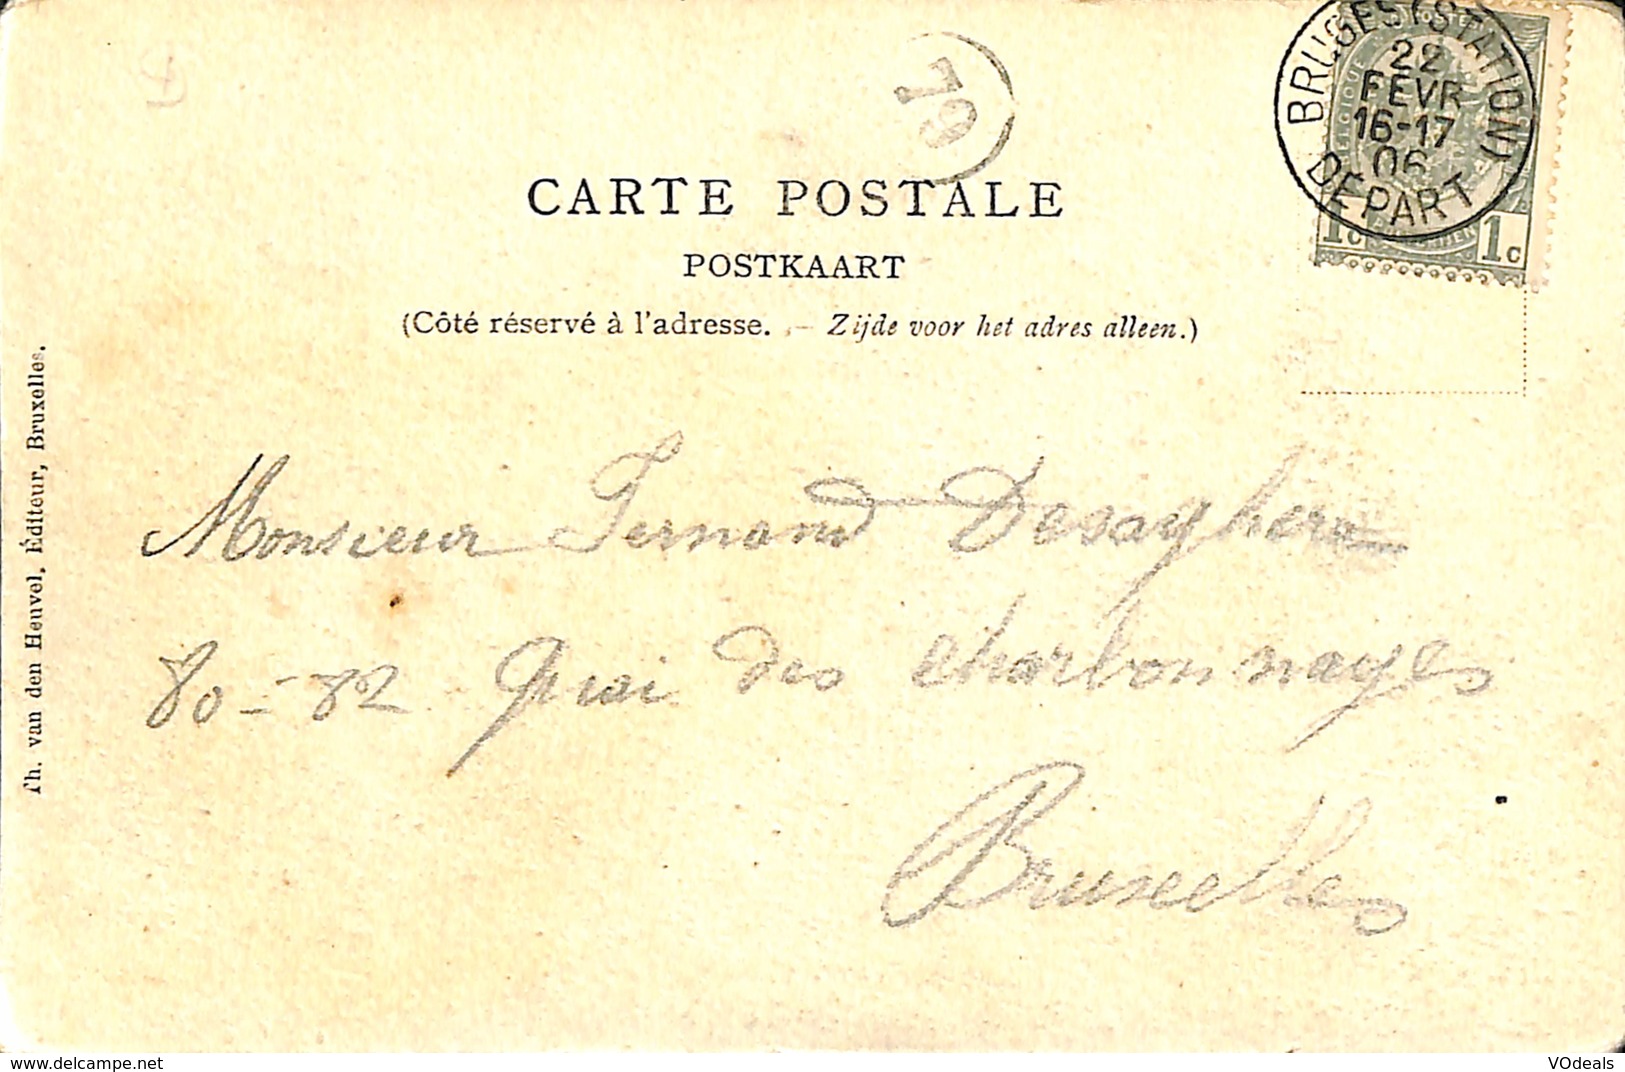 BRUGES (STATION)
22
FEVR
16-17
06
DÉPART
BELGIQUE
1c 1c
79
CARTE POSTALE
POSTKAART
(Côté réservé à l'adresse. — Zijde voor het adres alleen.)
Ph. van den Heuvel, Éditeur, Bruxelles.
Monsieur Fernand Desaghers
80-82 Quai des charbonnages
Bruxelles
www.delcampe.net
VOdeals